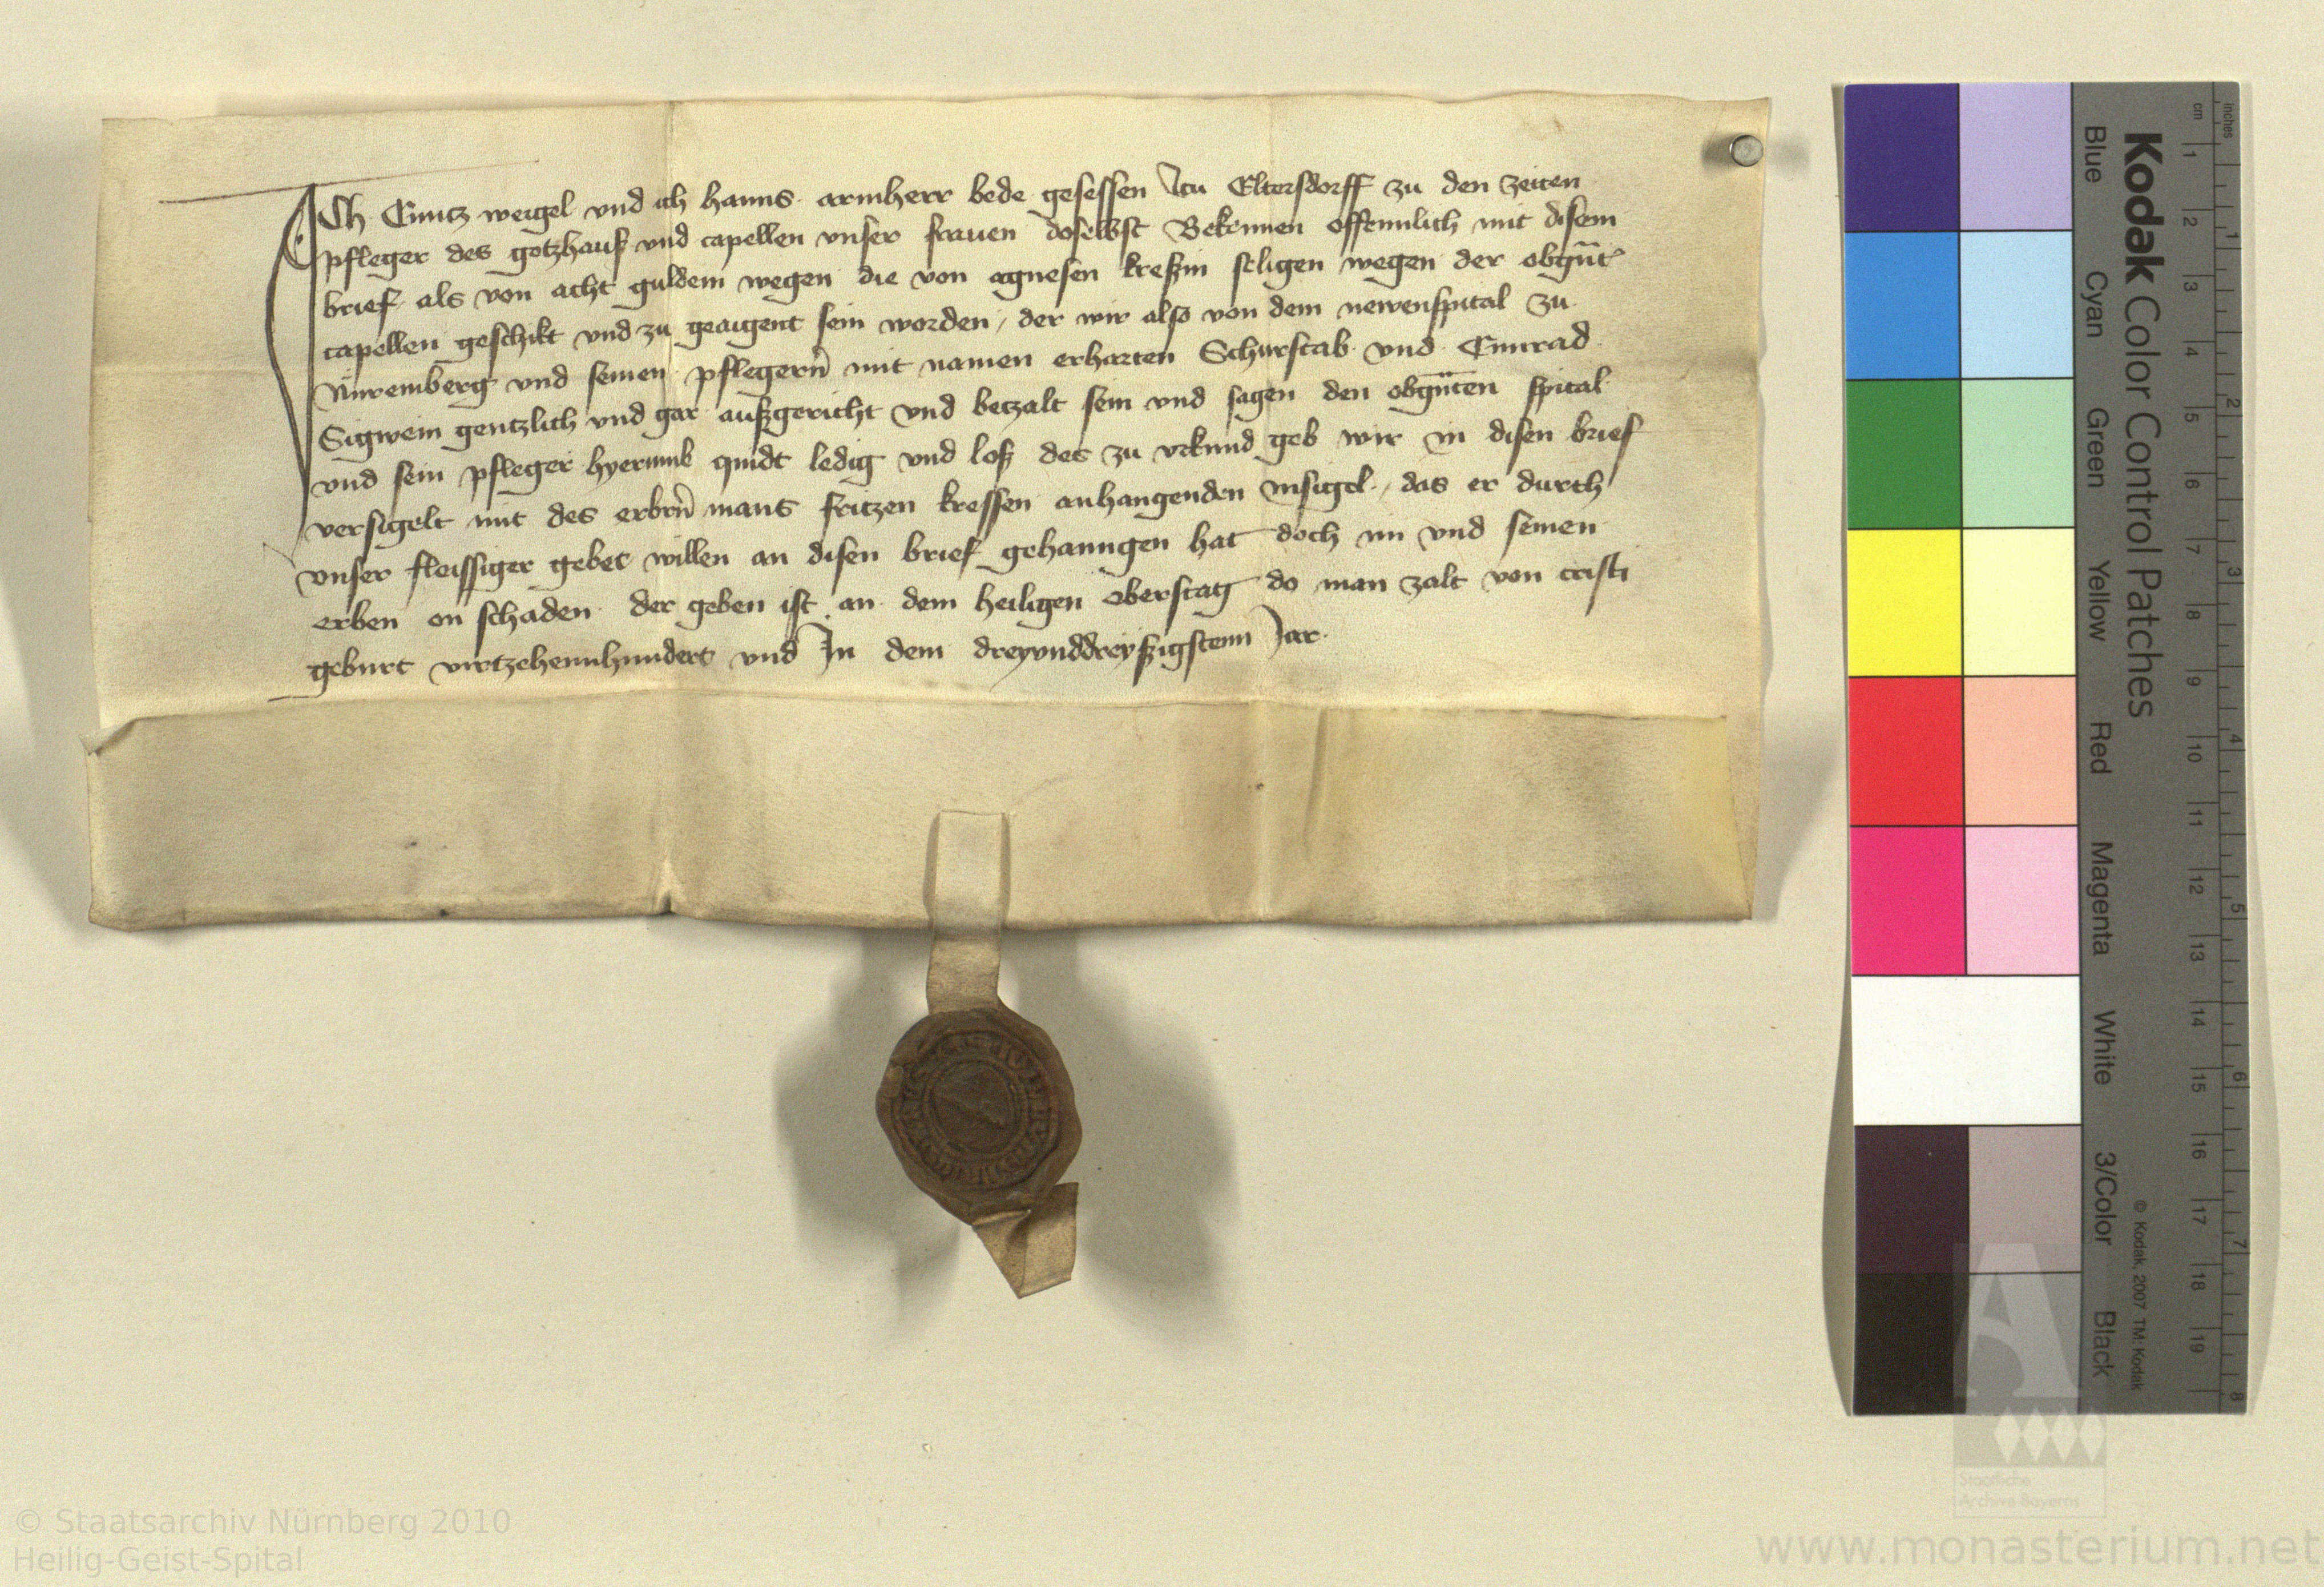 Ich Cuntz weigel vnd ich hanns armherr bede gesessen zu Eltersdorff zu den zeiten
pfleger des gotzhauß vnd capellen vnser frauen doselbst Bekennen offennlich mit disem
brief als von acht guldein wegen die von agnesen kreßin seligen wegen der obgn̄t
capellen geschikt vnd zu geaigent sein worden / der wir also von dem newenspital zu
Nüremberg vnd seinen pflegern̄ mit namen erharten Schurstab vnd Cunrad
Sigwein gentzlich vnd gar außgericht vnd betzalt sein vnd sagen den obgn̄ten spital
vnd sein pfleger hyerumb quidt ledig vnd loß des zu vrkund geb wir in disen brief
versigelt mit des erbrn̄ mans fritzen kressen anhangenden insigel / das er durch
vnser fleissiger gebet willen an disen brief gehanngen hat doch im vnd seinen
erben on schaden der geben ist an dem heiligen oberstag do man zalt von cristi
geburt virtzehennhundert vnd In dem dreyunddreyßzigstenn Jar
Kodak Color Control Patches
Blue Cyan Green Yellow Red Magenta White 3/Color Black
© Kodak, 2007 TM: Kodak
cm 1 2 3 4 5 6 7 8 9 10 11 12 13 14 15 16 17 18 19
inches 1 2 3 4 5 6 7 8
Staatliche
Archive Bayerns
© Staatsarchiv Nürnberg 2010
Heilig-Geist-Spital
www.monasterium.net